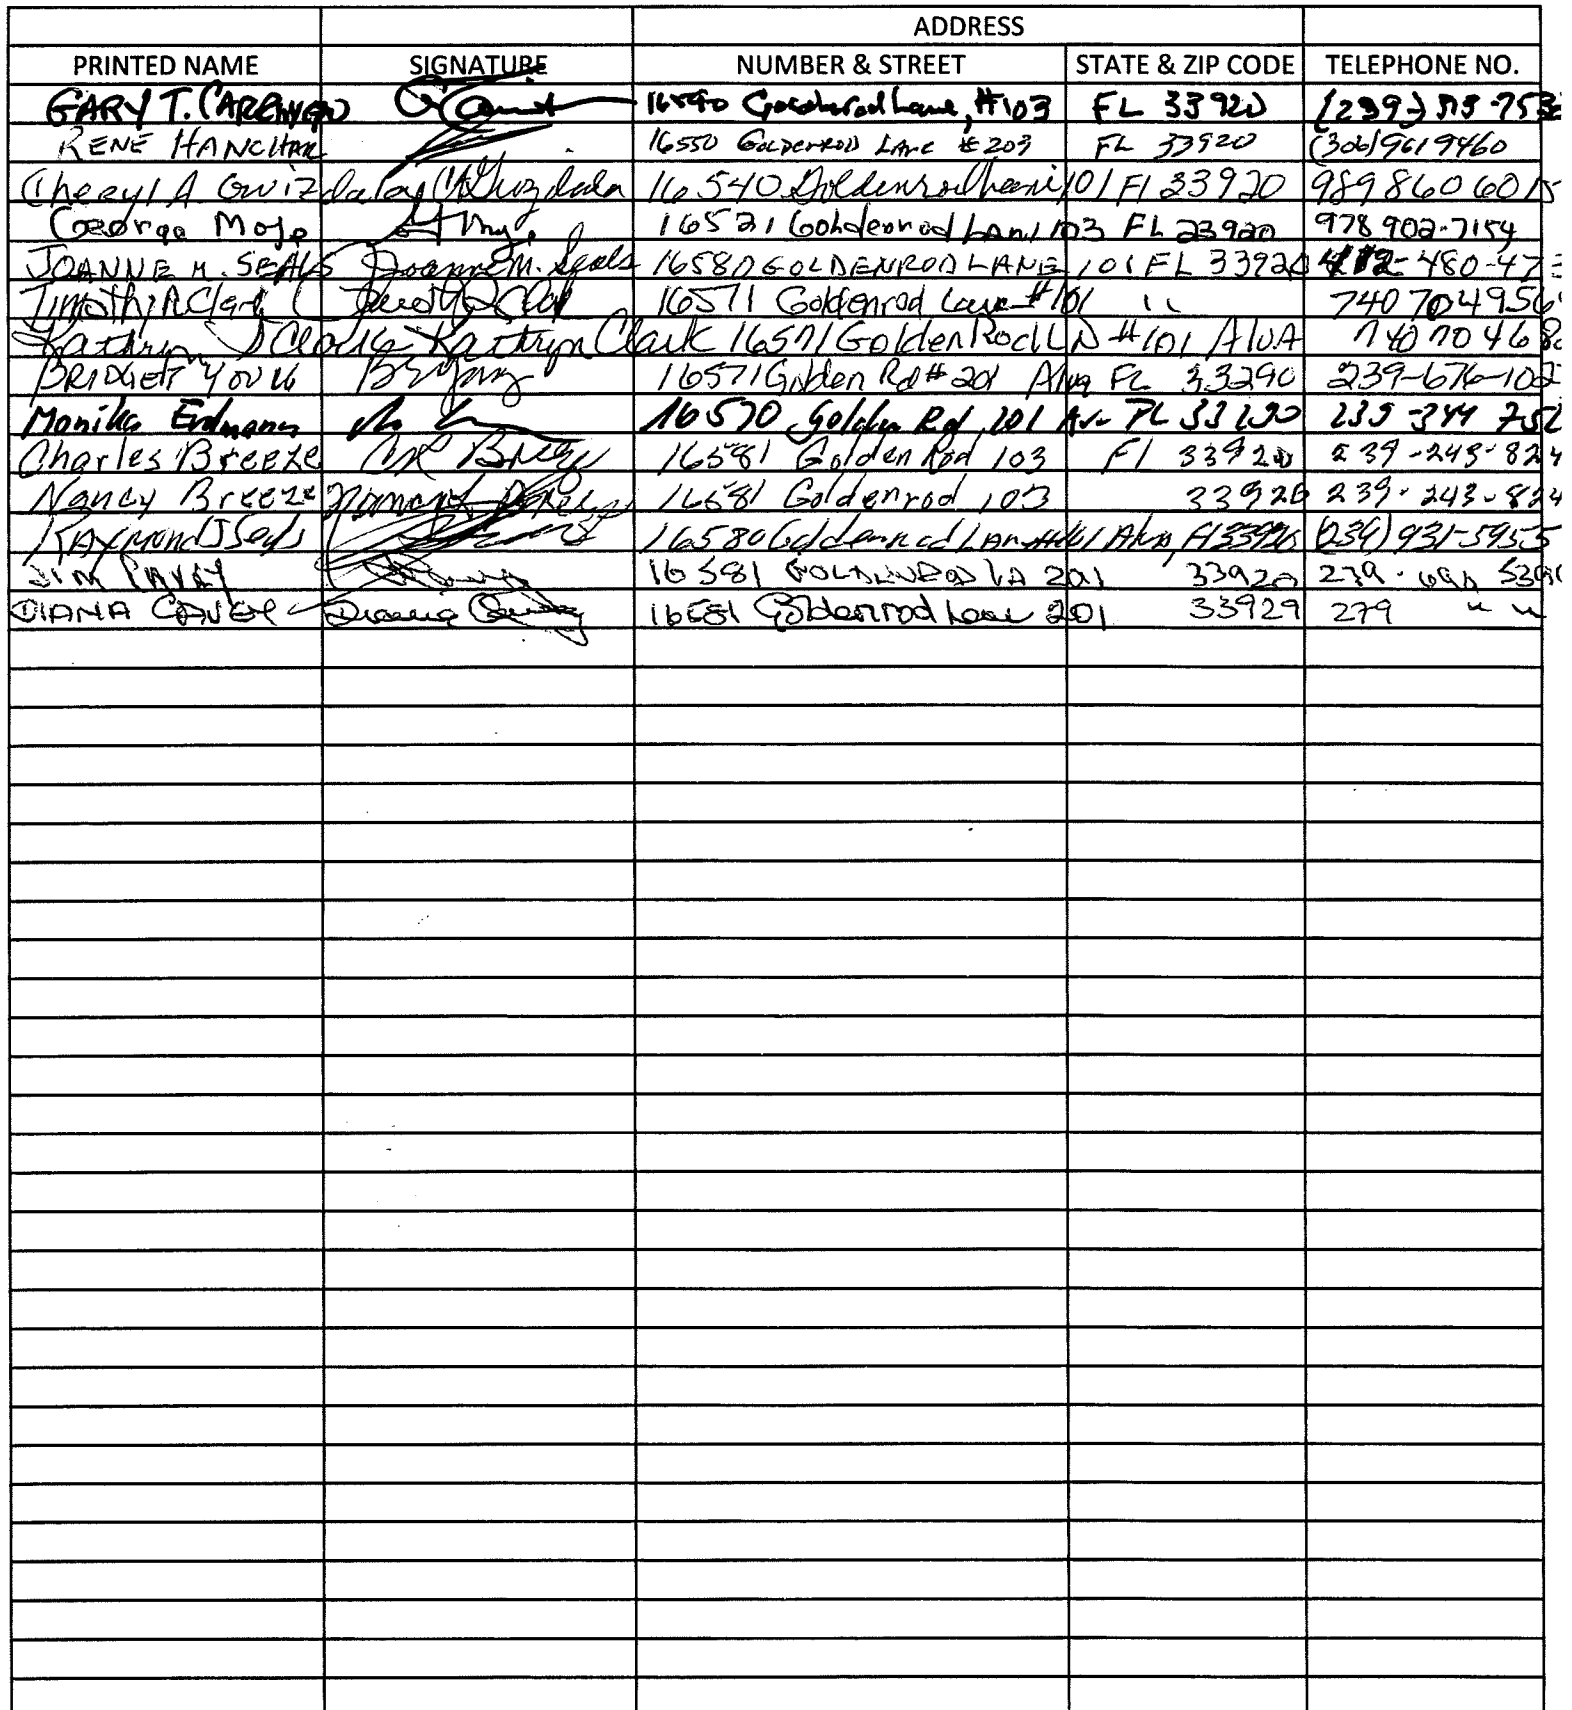 ADDRESS
PRINTED NAME SIGNATURE NUMBER & STREET STATE & ZIP CODE TELEPHONE NO.
GARY T. 16590 Goldenrod Lane, #103 FL 33920 (239)
RENÉ HANCHAR 16550 GOLDENROD LANE #203 FL 33920 (306) 961 9460
Cheryl A. Gwizdala 16540 Goldenrod Lane 101 Fl 33920 989 860 6015
George 16521 Goldenrod Lane 103 FL 23920 978 902-7154
JOANNE M. SEALS Joanne M. Seals 16580 GOLDENROD LANE 101 FL 33920 412-480-47
Timothy R Clark 16571 Goldenrod Lane #101 " 740 704 956
Kathryn J Clark Kathryn Clark 16571 GoldenRod LN #101 AlvA 740 704 68
BRIDGET YOUNG 16571 Golden Rd # 201 Alva FL 33290 239-676-102
Monika Erdmann 16570 Golden Rd 101 FL 33290 239-344 752
Charles Breeze 16581 Golden Rod 103 Fl 33920 239-243-824
Nancy Breeze 16581 Goldenrod 103 33920 239-243-824
RAymond J Seals 16580 Goldenrod LAne 101 Alva, Fl 33920 (239) 931-5955
JIM CAVEY 16581 GOLDENROD LA 201 33920 239
DIANA CAVEY Diana 16581 Goldenrod Lane 201 33929 279 " "